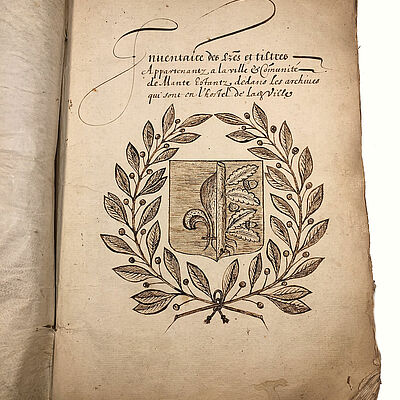 Inventaire des Lres et tiltres
Appartenantz, a la ville & Comunité
de Mante Estantz, dedans Les archives
qui sont en l'hostel de lad ville